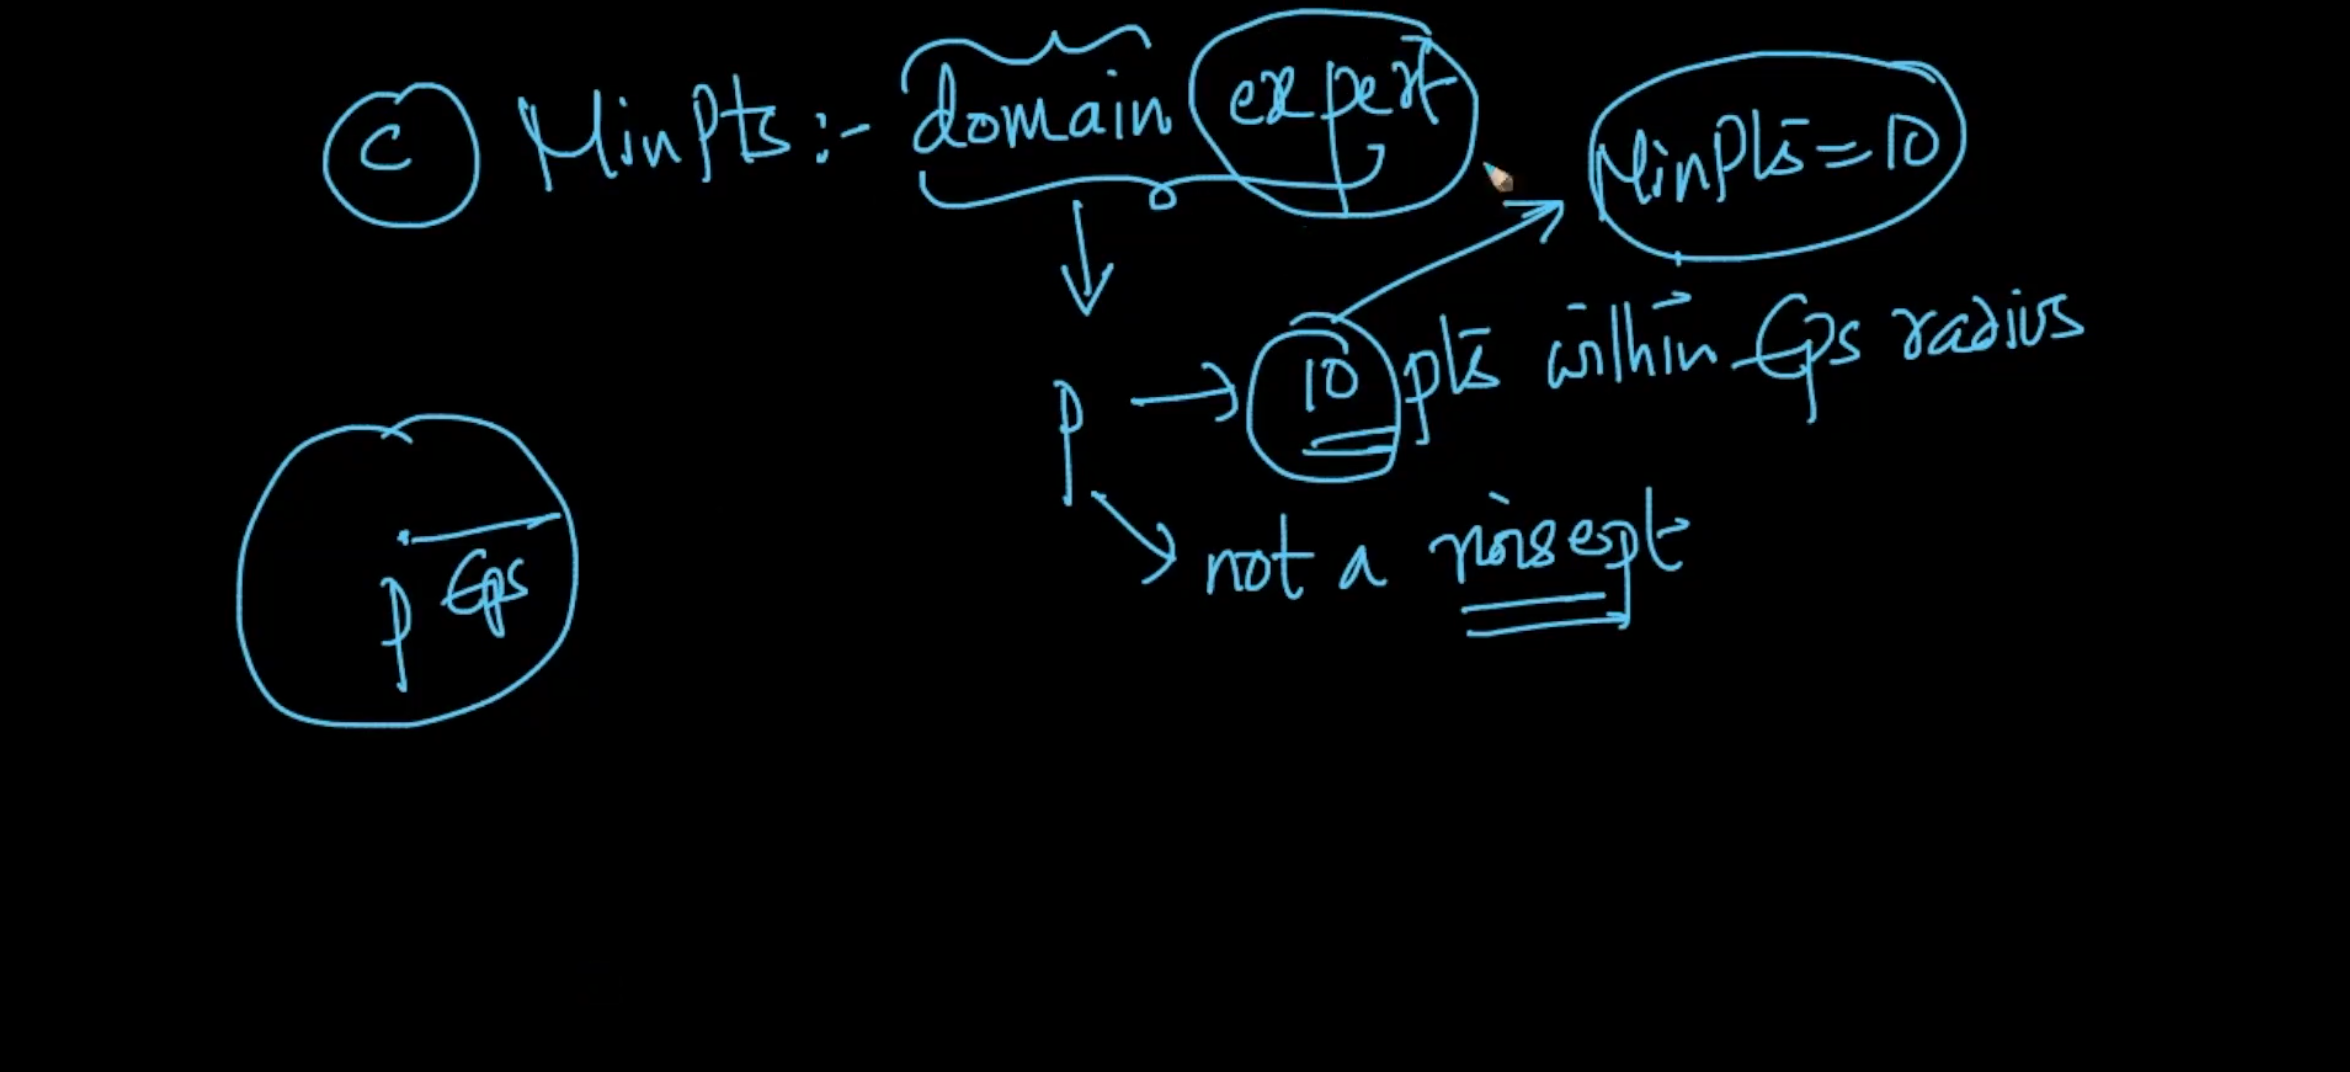 C MinPts :- domain expert
MinPts = 10
p → 10 pts within Eps radius
not a noise pt
Eps
p